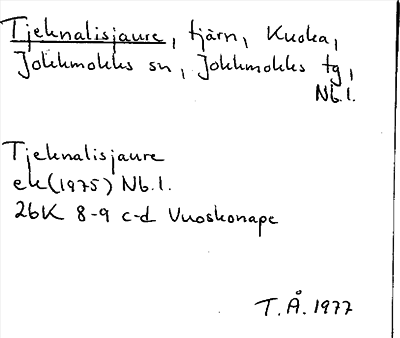 Tjeknalisjaure, tjärn, Kuoka,
Jokkmokks sn, Jokkmokks tg,
Nb.l.
Tjeknalisjaure
ek(1975) Nb.l.
26K 8-9 c-d Vuoskonape
T.Å. 1977